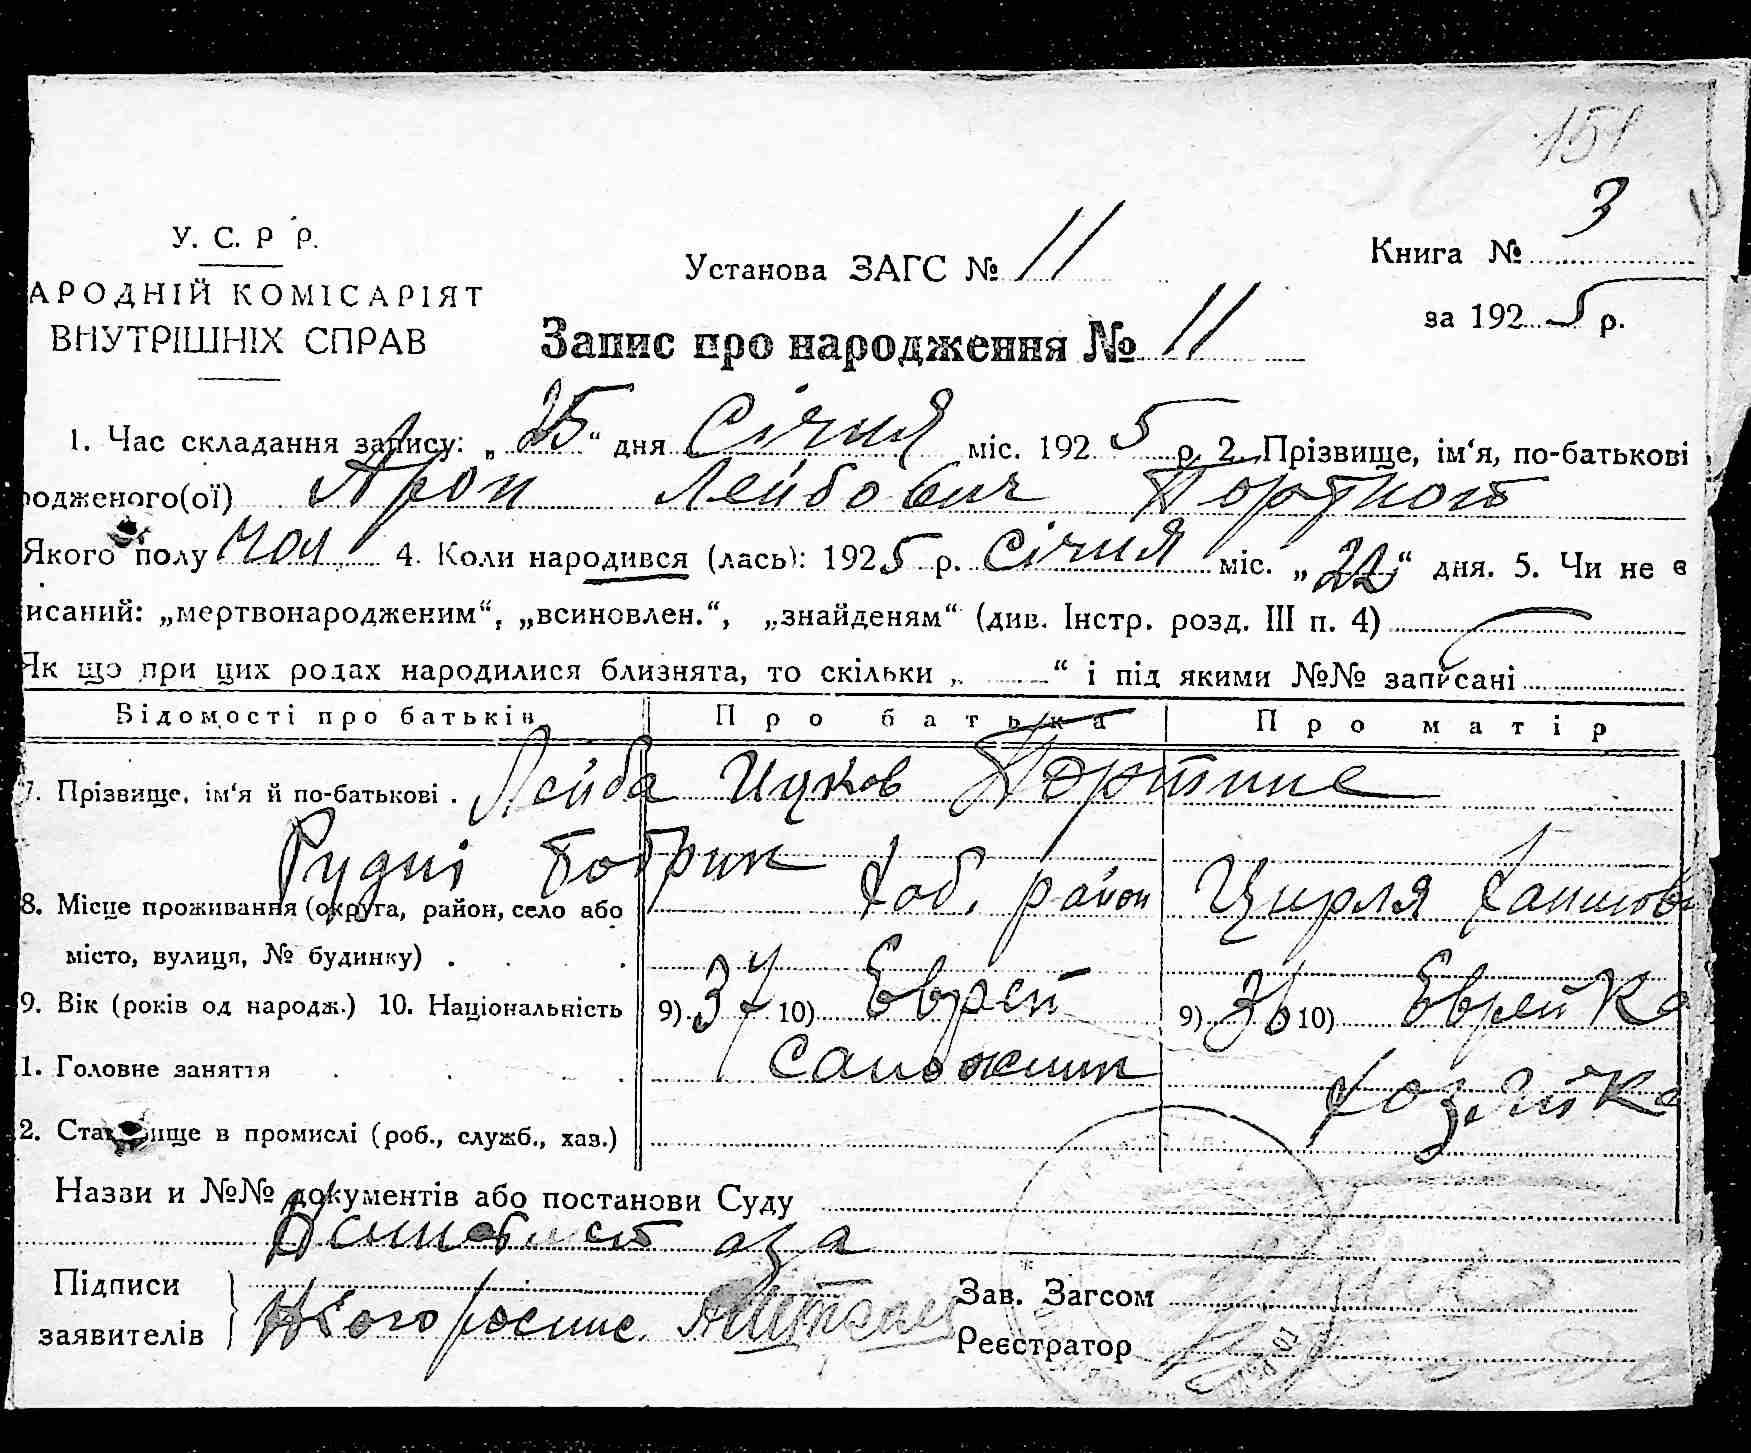 151
У. С. Р Р.
АРОДНІЙ КОМІСАРІЯТ
ВНУТРІШНІХ СПРАВ
Установа ЗАГС № 11
Книга № 3
за 1925 р.
Запис про народження № 11
1. Час складання запису: „25“ дня Січня міс. 1925 р. 2. Прізвище, ім‘я, по-батькові
одженого(ої) Арон Лейбович Портной
Якого полу Чол 4. Коли народився (лась): 1925 р. Січня міс. „22“ дня. 5. Чи не є
исаний: „мертвонародженим“, „всиновлен.“, „знайденям“ (див. Інстр. розд. III п. 4)
Як що при цих родах народилися близнята, то скільки „ “ і під якими №№ записані
Відомості про батьків Про батька Про матір
7. Прізвище, ім‘я й по-батькові . Лейба Ицков
Рудні Бобрик
8. Місце проживання (округа, район, село або Хаб. район Цирля
місто, вулиця, № будинку) . . . .
9. Вік (років од народж.) 10. Національність 9) 37 10) Еврей 9) 36 10) Еврейка
1. Головне заняття . . . . Сапожник Хозяйка
2. Становище в промислі (роб., служб., хаз.)
Назви и №№ документів або постанови Суду
за
Підписи
заявителів
Зав. Загсом
Реєстратор